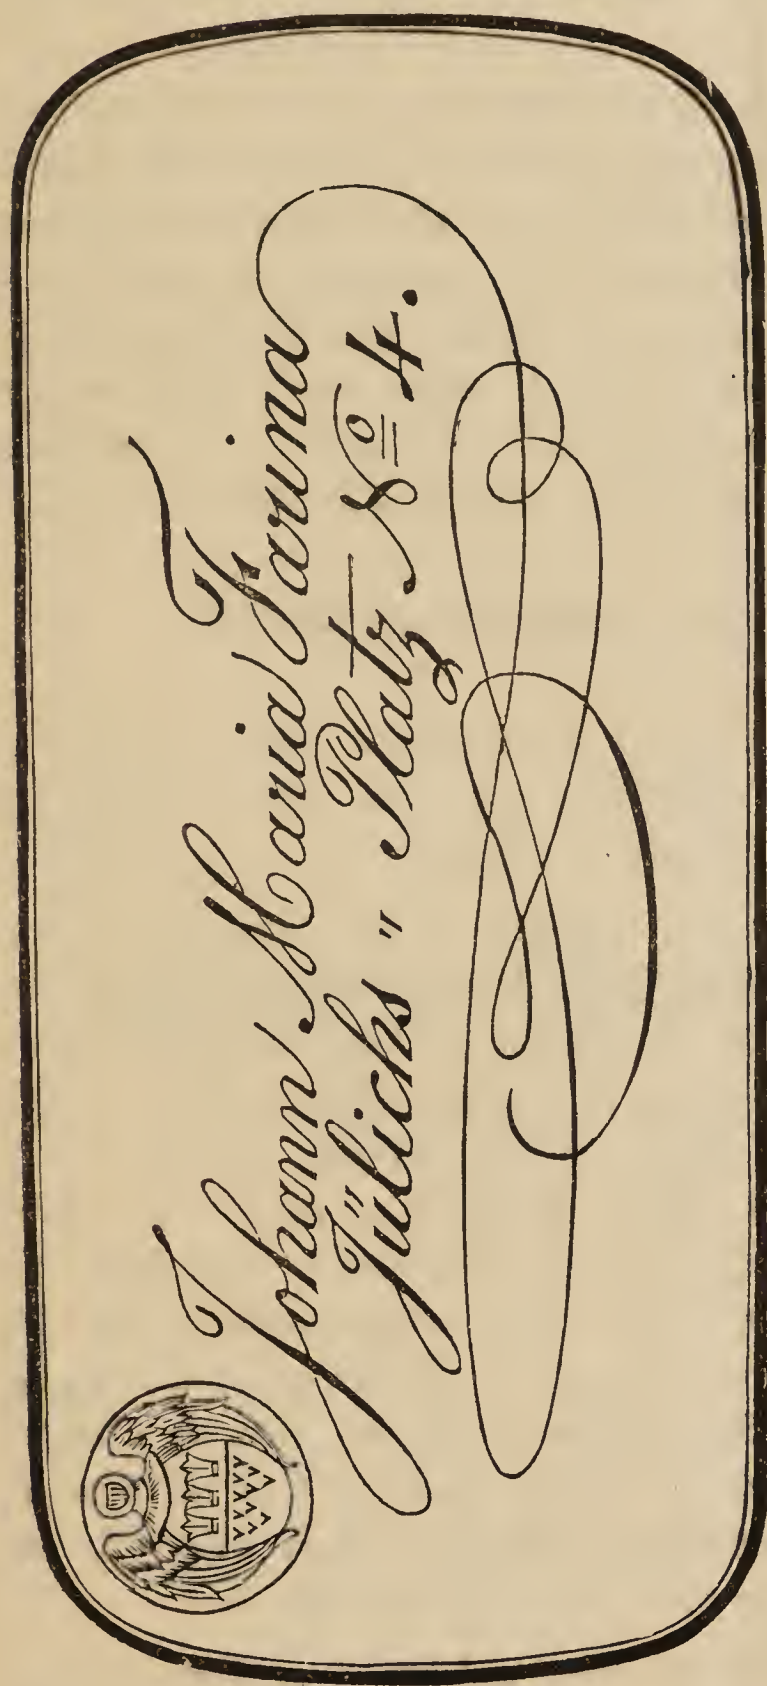 Johann Maria Farina
Jülichs " Platz No 4.